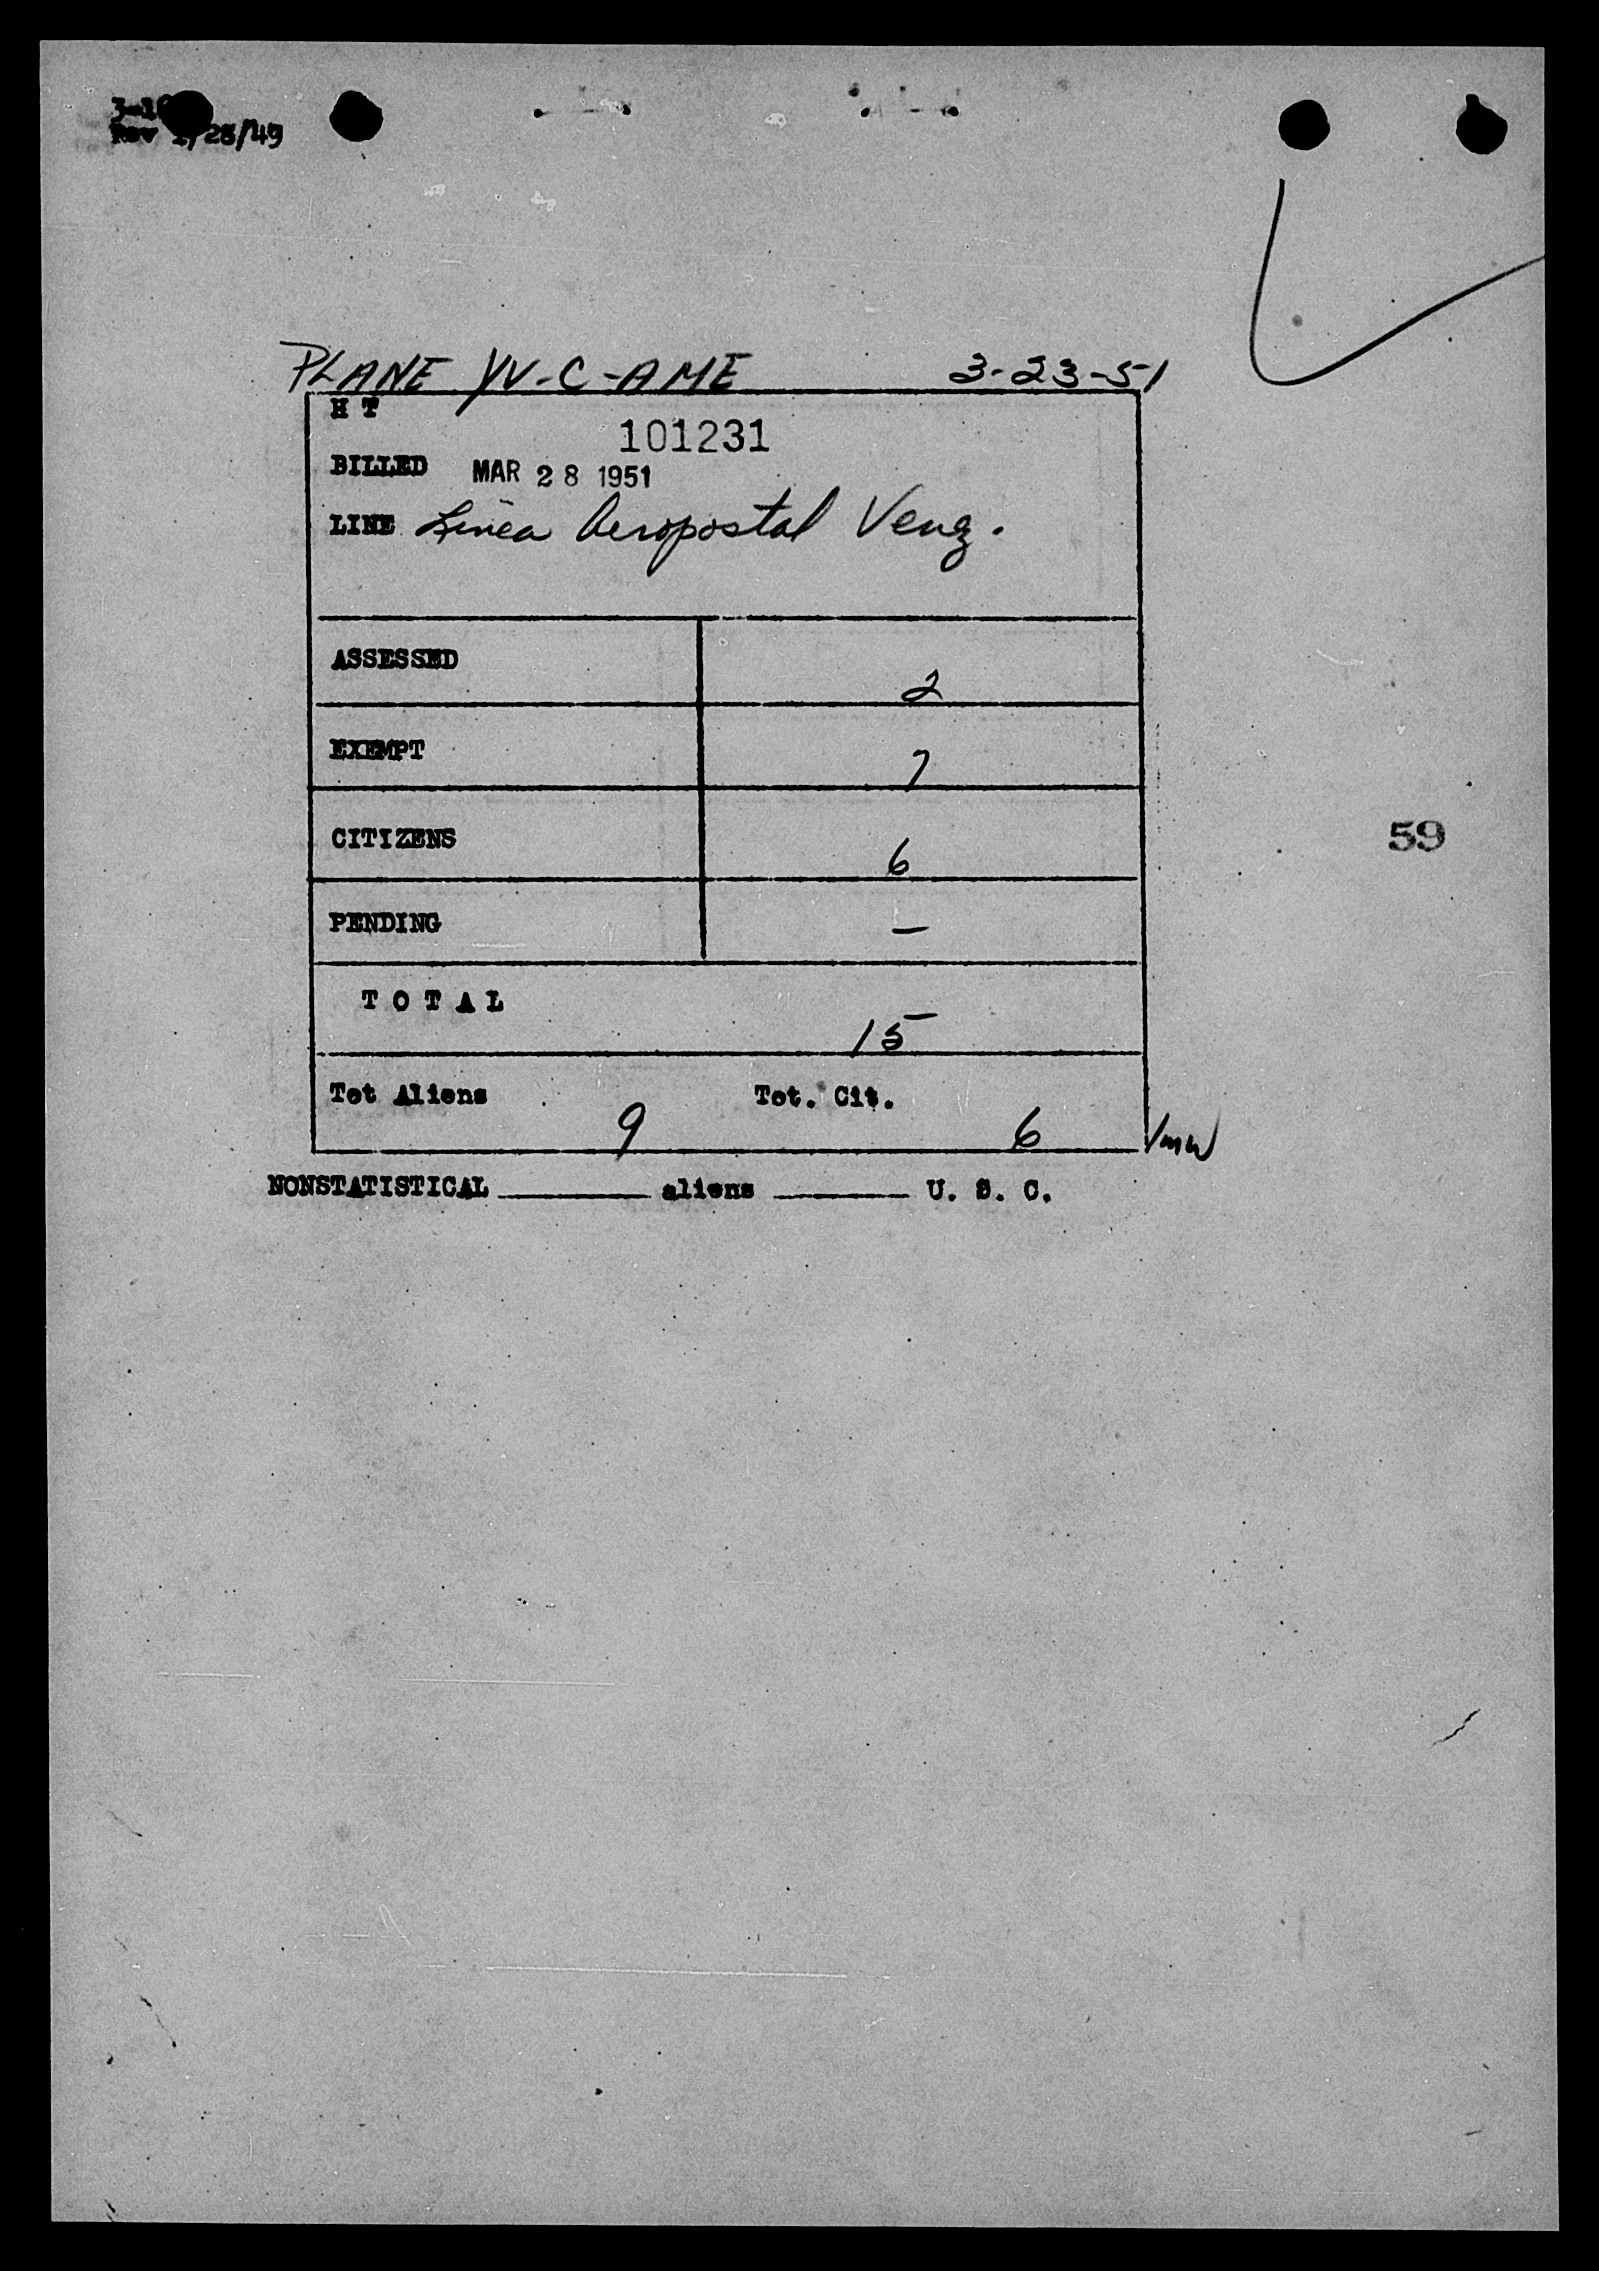 Rev 1/28/49
PLANE YV-C-AME 3-23-51
H T
101231
BILLED MAR 28 1951
LINE Linea Aeropostal Venz.
ASSESSED 2
EXEMPT 7
CITIZENS 6
59
PENDING —
TOTAL 15
Tot Aliens 9 Tot. Cit. 6 /mw
NONSTATISTICAL ______ aliens ______ U. S. C.